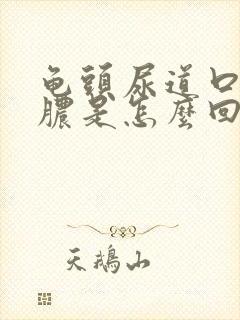 龟頭尿道口
膿是怎麼回
天鵝山